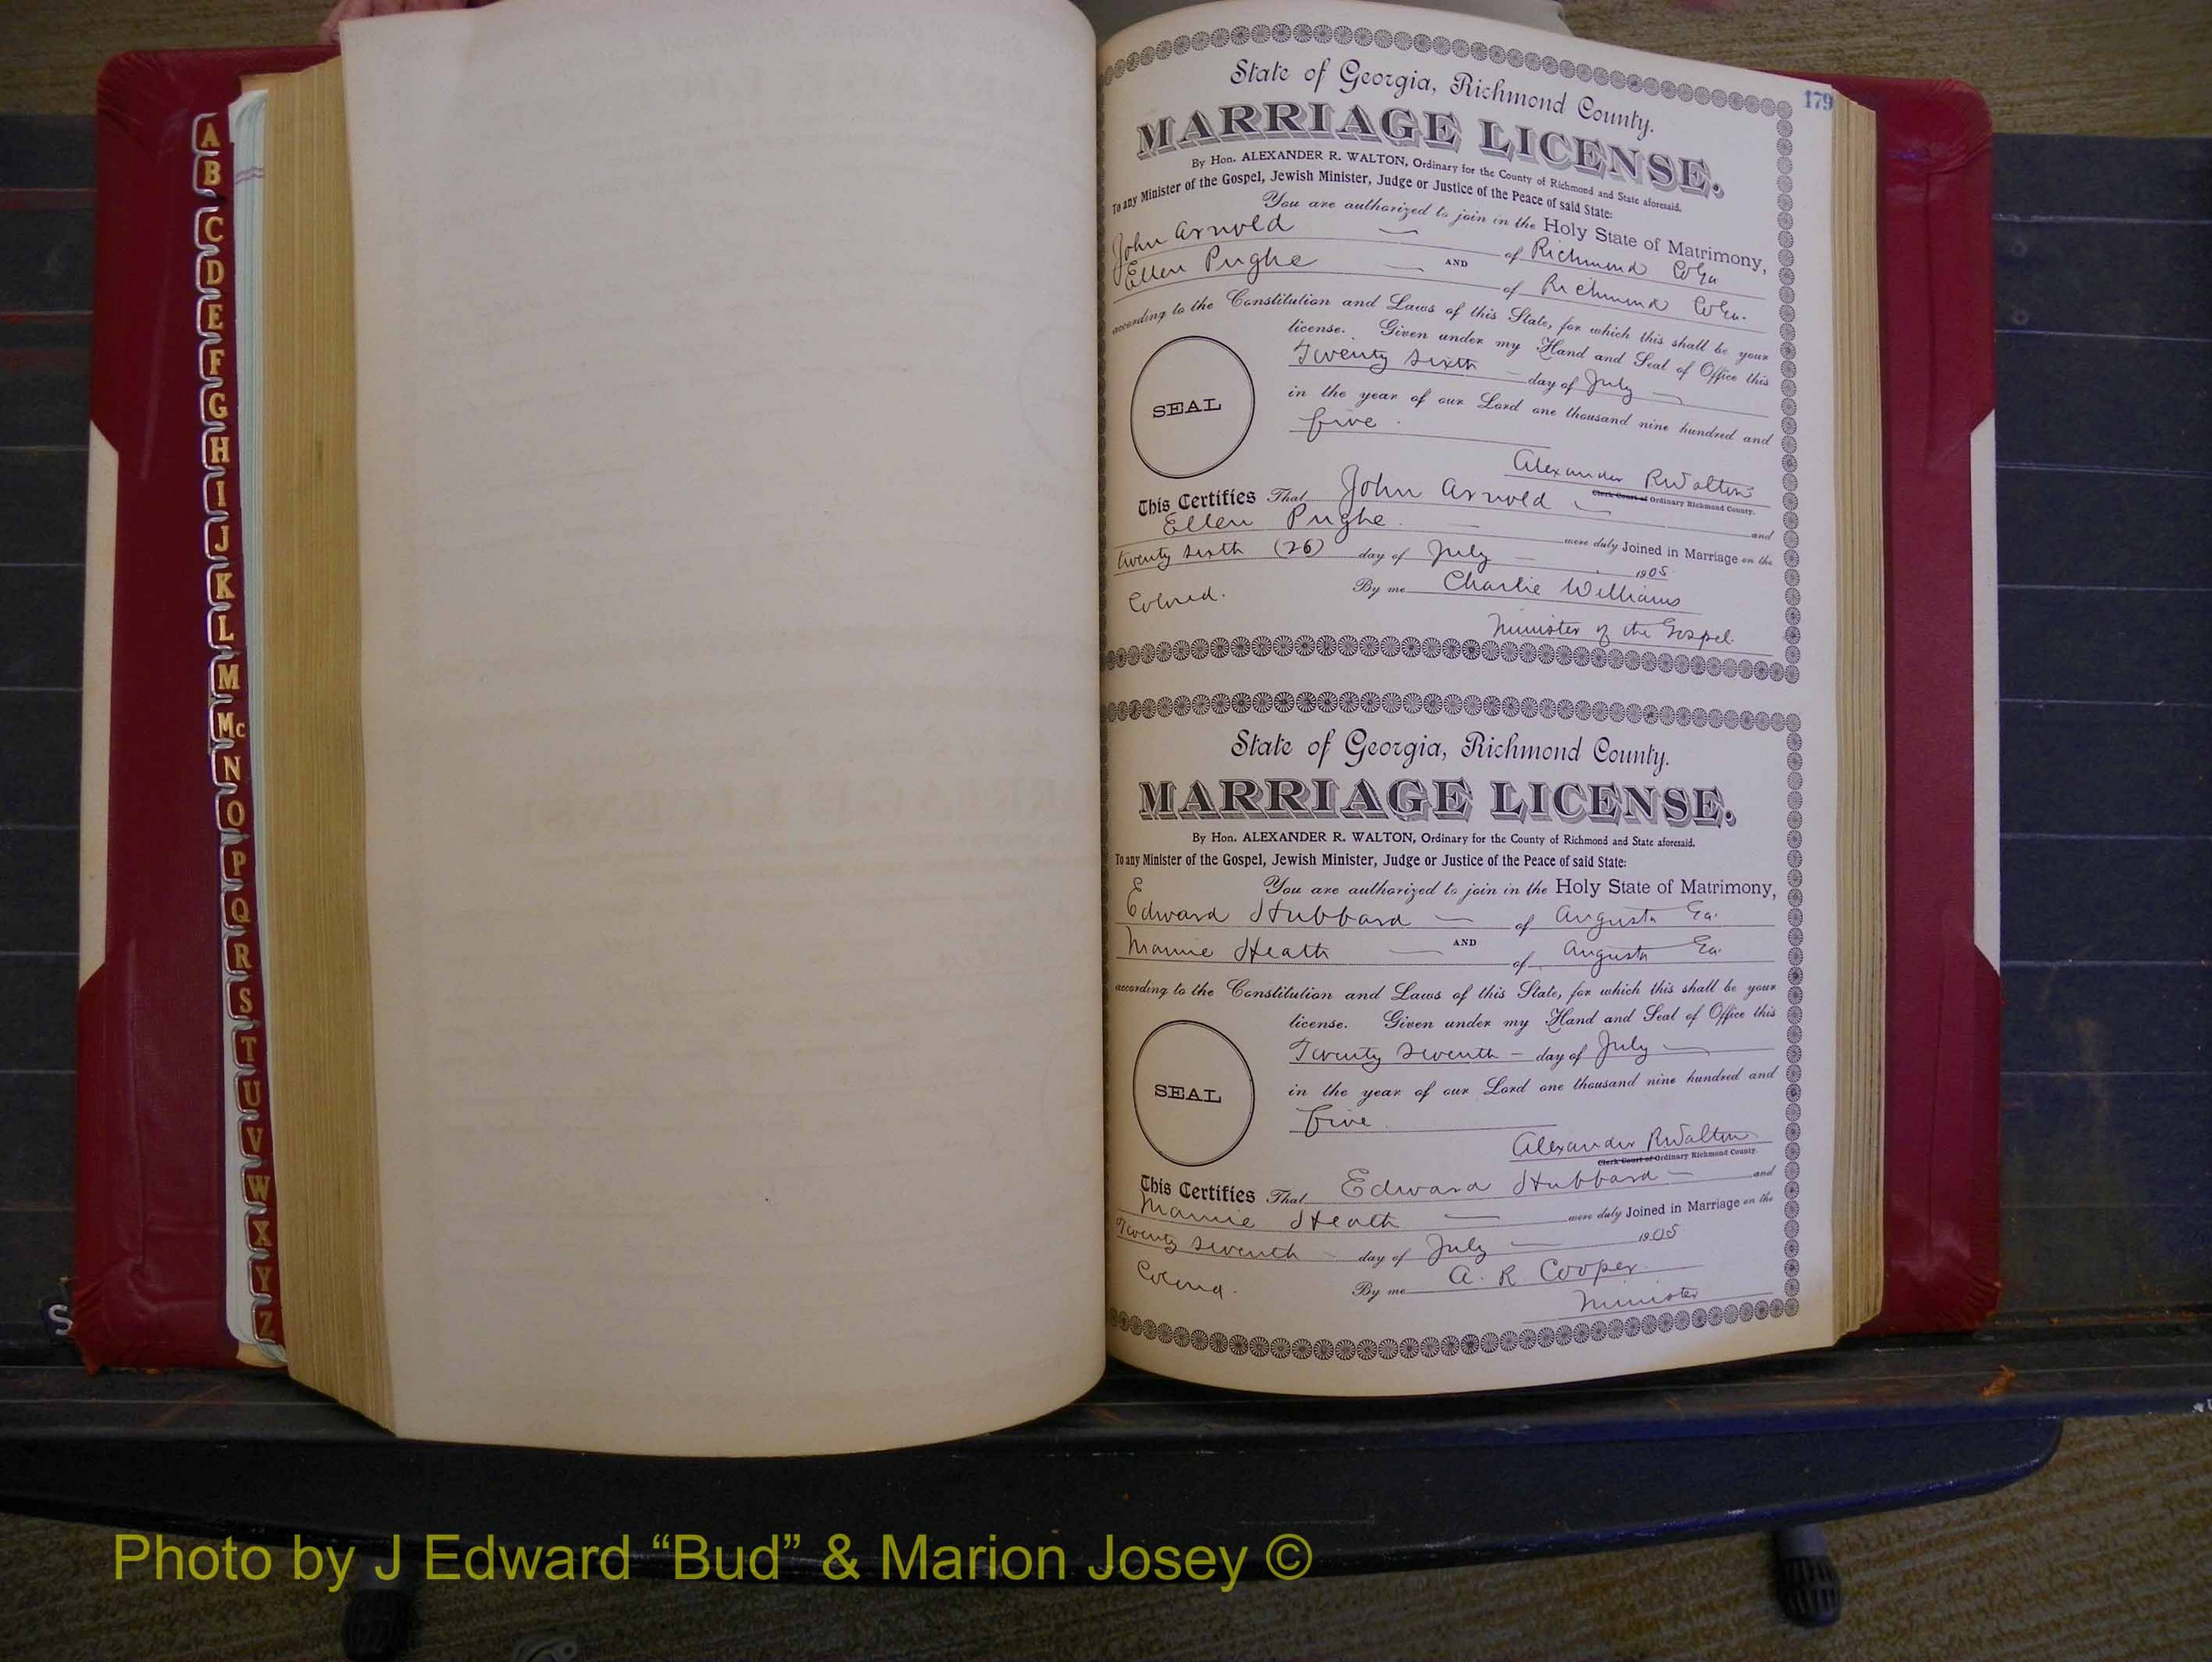 A
B
C
D
E
F
G
H
I
J
K
L
M
Mc
N
O
P
Q
R
S
T
U
V
W
X
Y
Z
S
179
State of Georgia, Richmond County.
MARRIAGE LICENSE.
By Hon. ALEXANDER R. WALTON, Ordinary for the County of Richmond and State aforesaid.
To any Minister of the Gospel, Jewish Minister, Judge or Justice of the Peace of said State:
You are authorized to join in the Holy State of Matrimony,
John Arnold — of Richmond Co Ga
AND
Ellen Pughe — of Richmond Co Ga.
according to the Constitution and Laws of this State, for which this shall be your
license. Given under my Hand and Seal of Office this
Twenty Sixth — day of July —
in the year of our Lord one thousand nine hundred and
five.
SEAL
Alexander R Walton
Clerk Court of Ordinary Richmond County.
This Certifies That John Arnold — and
Ellen Pughe. — were duly Joined in Marriage on the
twenty sixth (26) day of July — 1905.
Colored. By me Charlie Williams
Minister of the Gospel.
State of Georgia, Richmond County.
MARRIAGE LICENSE.
By Hon. ALEXANDER R. WALTON, Ordinary for the County of Richmond and State aforesaid.
To any Minister of the Gospel, Jewish Minister, Judge or Justice of the Peace of said State:
You are authorized to join in the Holy State of Matrimony,
Edward Hubbard — of Augusta Ga.
AND
Mamie Heath — of Augusta Ga.
according to the Constitution and Laws of this State, for which this shall be your
license. Given under my Hand and Seal of Office this
Twenty Seventh — day of July —
in the year of our Lord one thousand nine hundred and
five.
SEAL
Alexander R Walton
Clerk Court of Ordinary Richmond County.
This Certifies That Edward Hubbard — and
Mamie Heath — were duly Joined in Marriage on the
Twenty Seventh — day of July — 1905
Colored. By me A. R. Cooper.
Minister
Photo by J Edward “Bud” & Marion Josey ©